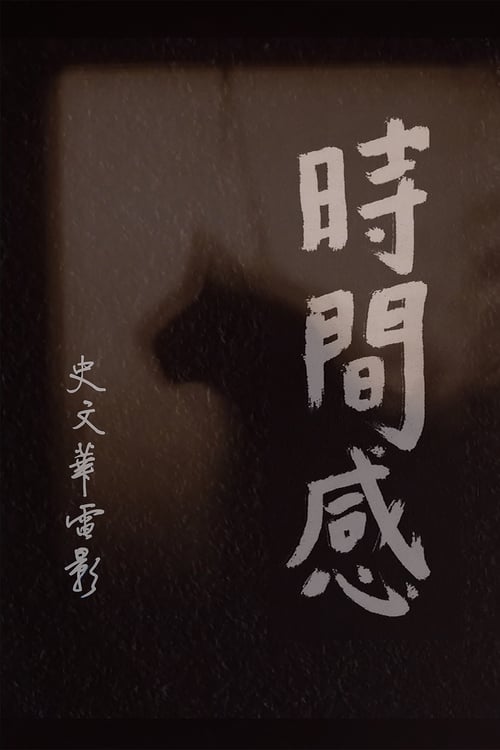 時間感
史文華電影